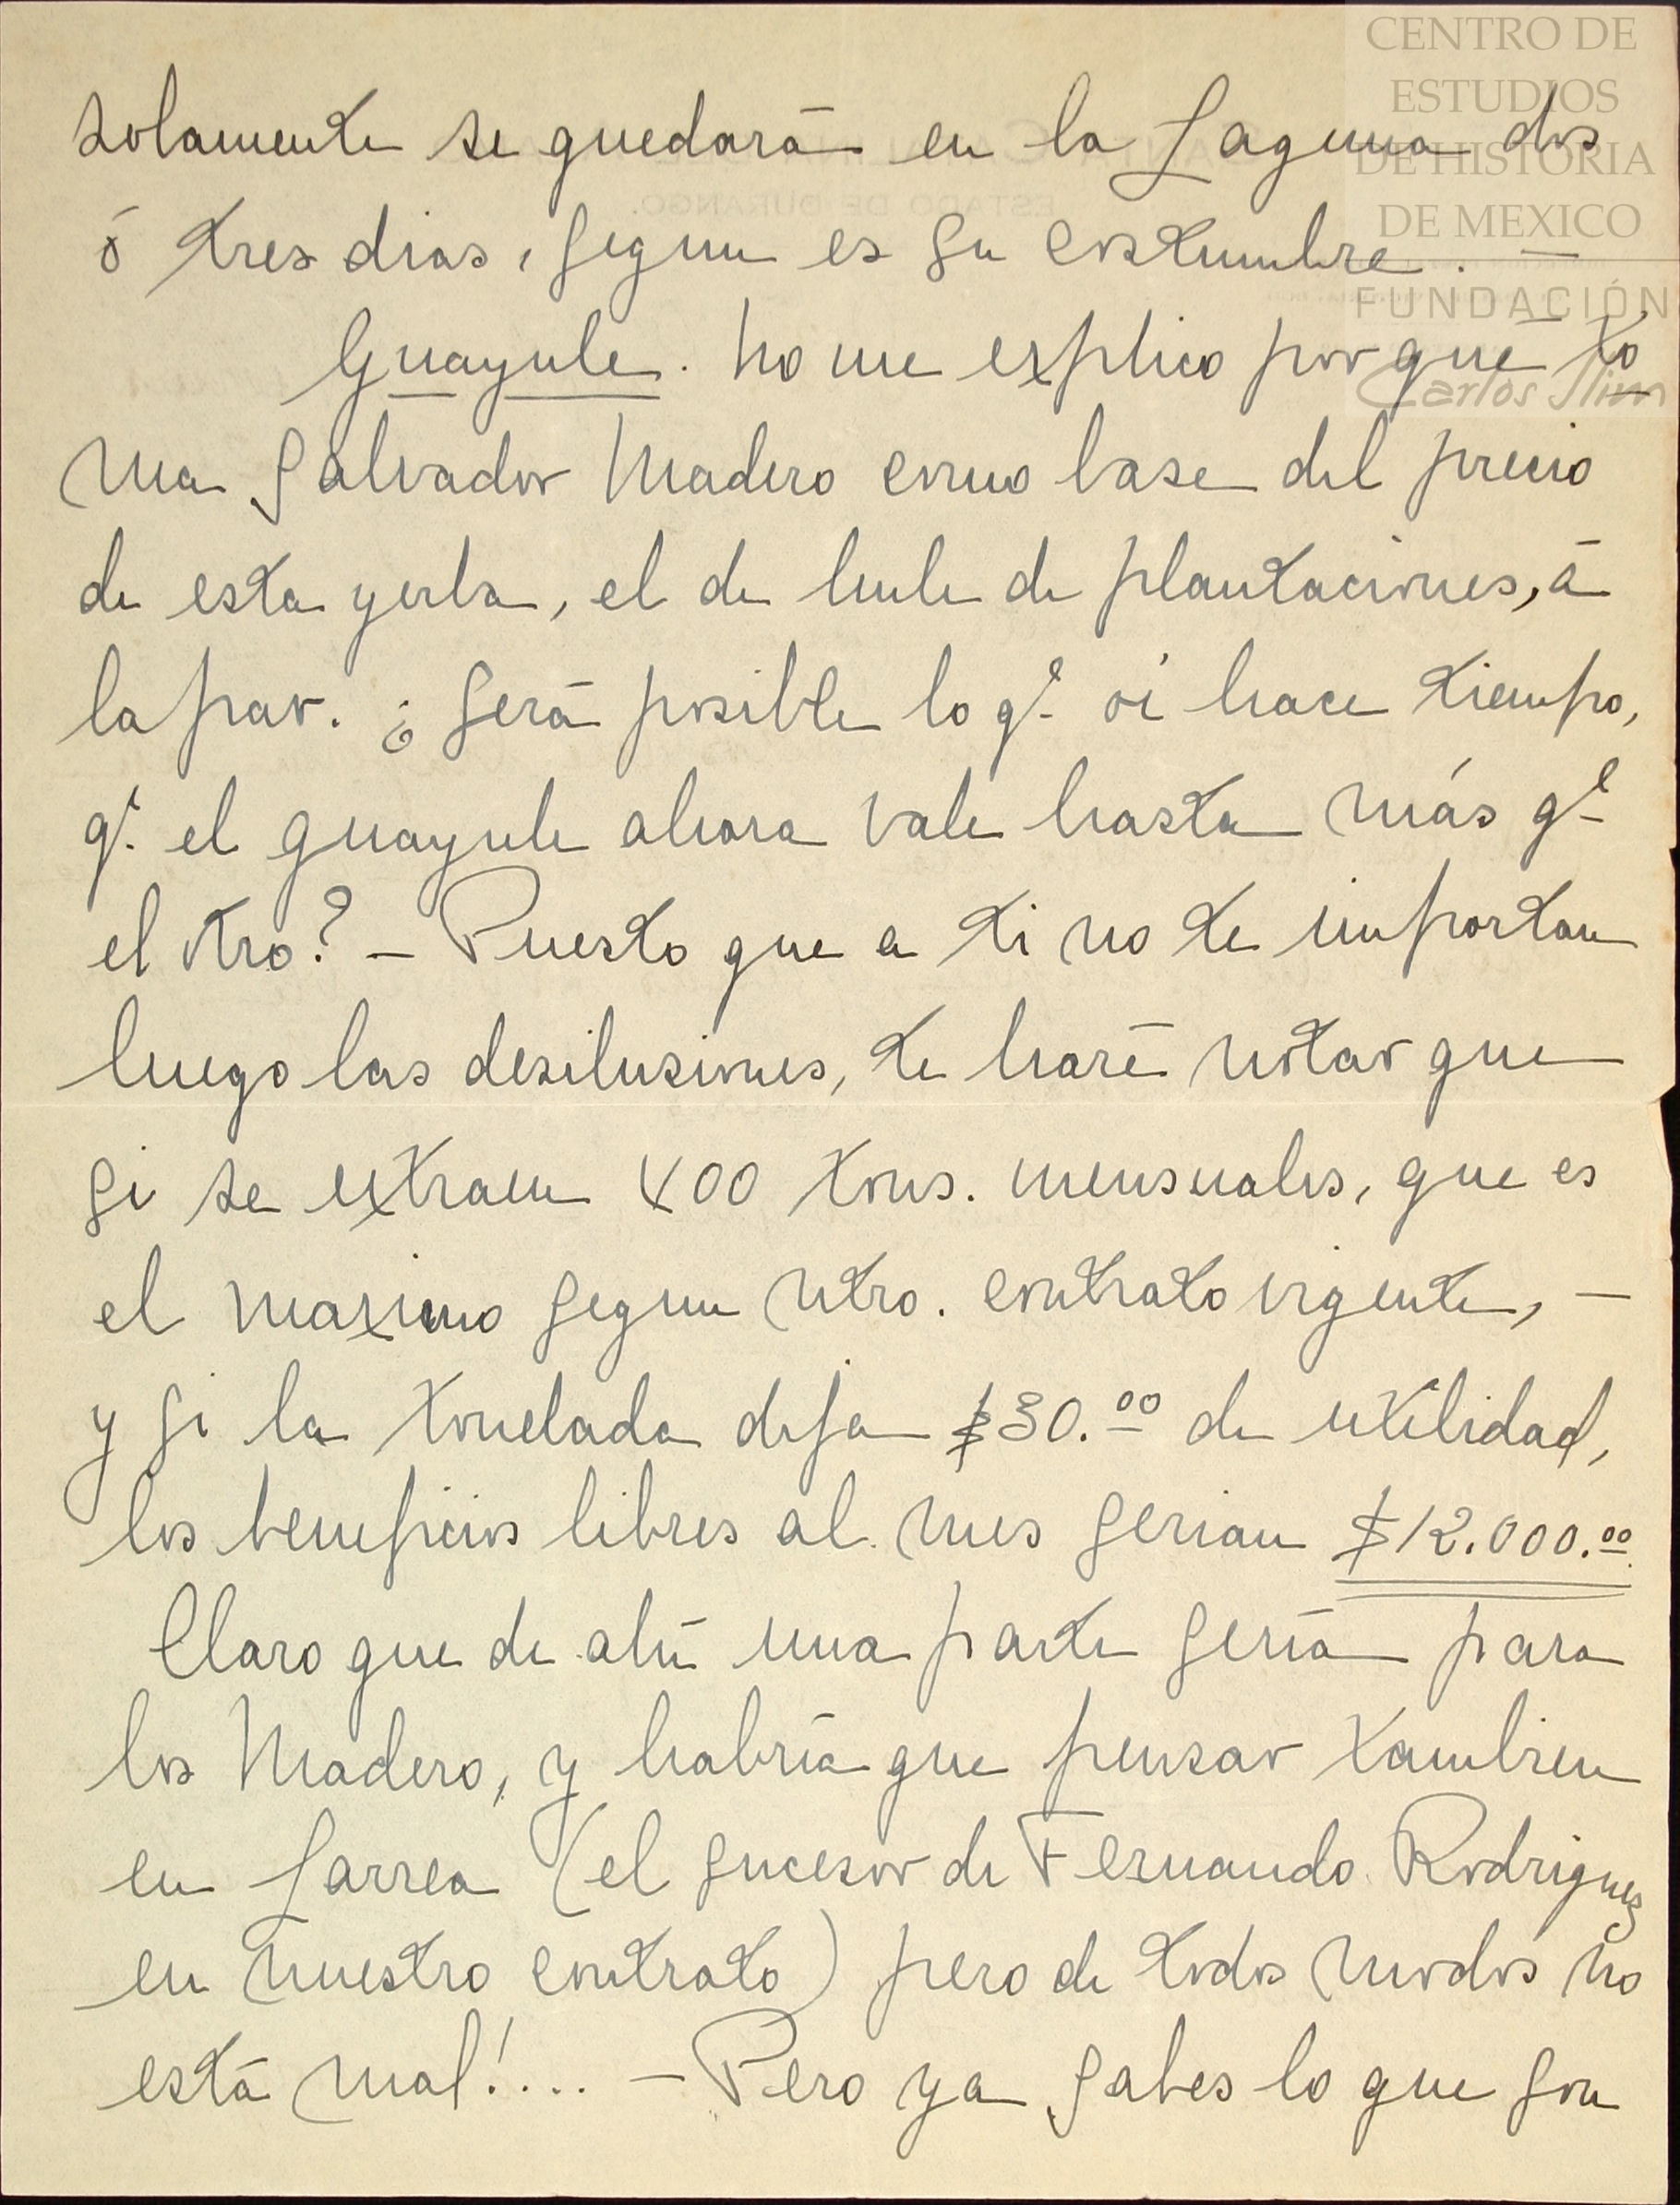 CENTRO DE
ESTUDIOS
DE HISTORIA
DE MEXICO
FUNDACIÓN
Carlos Slim
ESTADO DE DURANGO.
solamente se quedará en la Laguna dos
ó tres dias, segun es su costumbre. —
Guayule. No me explico por qué to
ma Salvador Madero como base del precio
de esta yerba, el de hule de plantaciones, á
la par. ¿Será posible lo qe oí hace tiempo,
qe el guayule ahora vale hasta más qe
el otro? — Puesto que a ti no te importan
luego las desilusiones, te haré notar que
si se extraen 400 tons. mensuales, que es
el maximo segun ntro. contrato vigente, —
y si la tonelada deja $30.00 de utilidad,
los beneficios libres al mes serian $12.000.00
Claro que de ahí una parte sería para
los Madero, y habría que pensar tambien
en Larrea (el sucesor de Fernando Rodriguez
en nuestro contrato) pero de todos modos no
está mal!.... — Pero ya sabes lo que son